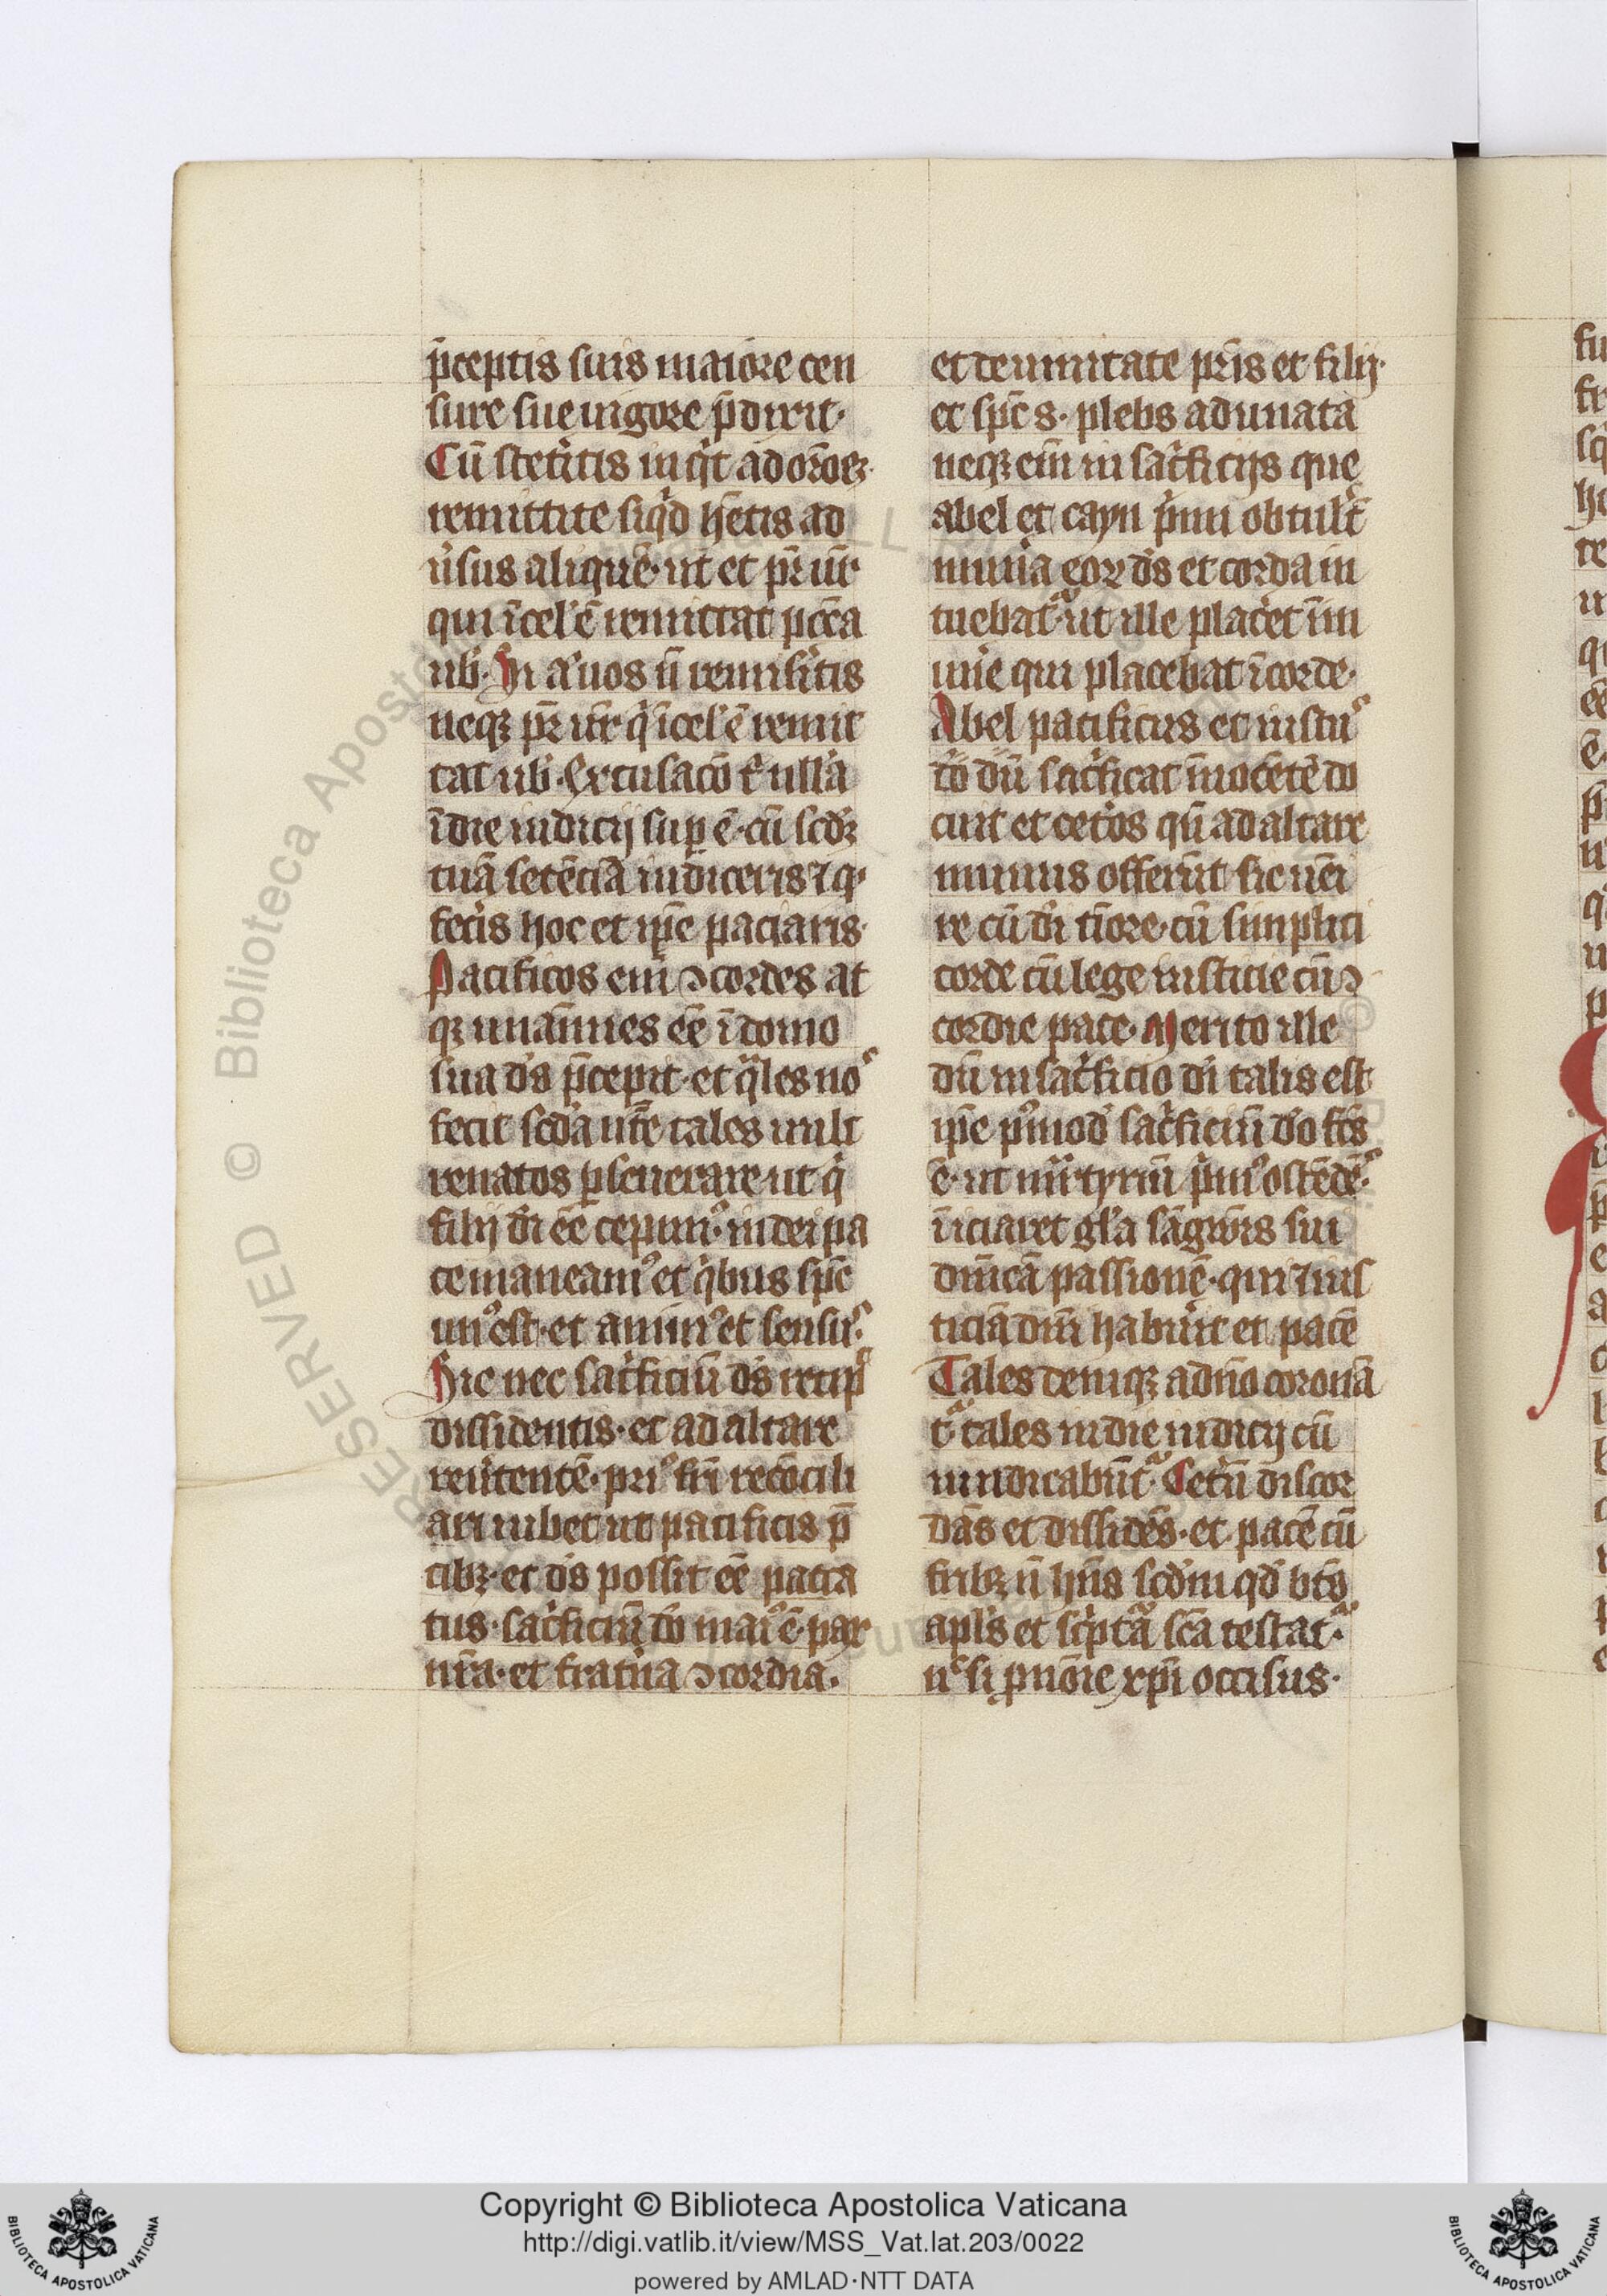 p̄ceptis suis maiore cen
sure sue uigore p̄dixit·
Cū stet͛itis inq͛t ad oröeȝ·
remittite siq͛d h̄etis ad
ũsus aliquē· ut et pr̄ ur̄
qui ī cel' ē remittat pc̄c̄a
ub̓· In aũ uos ñ remis͛itis
neqȝ pr̄ ur̄ q͛ ī cel' ē remit
tat ub̓· Excusac̄o t͛ ulla
ī die iudicij sup ē· cū sc̄dȝ
tuā setēciā iudiceris ⁊ qͦ
fec͛is hoc et ip̄e paciaris·
Pacificos eni͞ ↄcordes at
qȝ unāimes e͞e ī domo
sua d̄s p̄cepit· et q͛les noˢ
fecit sc̄da ut̄e tales uult
renatos ꝑseuerare ut q͛
filij di͞ e͞e cepimꝰ· in dei pa
ce maneamꝰ et q͛bus sp̄c
unꝰ est· et animꝰ et sensuˢ·
Hic nec sac͛ficiū d̄s recip͛
dissidentis· et ad altare
reũtentē· priꝰ fr̄i recōcili
ari iubet ut pacificis p̄
cibȝ· et d̄s possit e͞e pacca
tus· sac͛ficiū do͞ maiꝰ ē· pax
nr̄a· et frat͛na ↄcordia·
et de unitate pr̄is et filij·
et sp̄c s· plebs adunata
neqȝ eni͞ in sac͛ficijs que
abel et cayn p͛mi obtul͛t
mun͛a eoꝝ d̄s et corda in
tuebatᷓ· ut ille plac͛et ī m
un͛e qui placebat ī corde·
Abel pacificus et iustuˢ
do͞ dū sac͛ficat īnocētē do
cuit et cet͛os qn̄ ad altare
munus offerūt sic uēi
re cū di͞ ti͞ore· cū simplici
corde cū lege iusticie cū ↄ
cordie pace· Merito ille
dū in sac͛ficio di͞ talis est
ip̄e pꝰmod̓ sac͛ficiū do͞ fc̄s
ē· ut m̄r̄tyriū p͛mꝰ ostēdēˢ·
īiciaret gl̓a sāgui͞s sui
dn̄icā passionē· qui ⁊ ius
ticiā dn̄i habu͛it et pacē
Tales deniqȝ a dn̄o coronā
tᷓ· tales in die iudicij cū
iudicabūtᷓ· Cet͛ū discor
dās et dissidēs· et pacē cū
fribȝ ñ hn̄s sc̄dm qd̓ bt̄s
apl̓s et sc͛ptᷓa sc̄a testatᷓ·
nᶜ si ꝓ nōie xp̄i occisus·
Copyright © Biblioteca Apostolica Vaticana
http://digi.vatlib.it/view/MSS_Vat.lat.203/0022
powered by AMLAD·NTT DATA